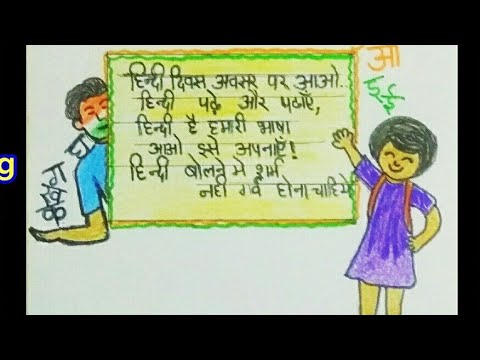 हिन्दी दिवस अवसर पर आओ..
हिन्दी पढ़े और पढाएँ,
हिन्दी है हमारी भाषा
आओ इसे अपनाएँ!
हिन्दी बोलने मे शर्म
नही गर्व होना चाहिये
आ
इ ई
g